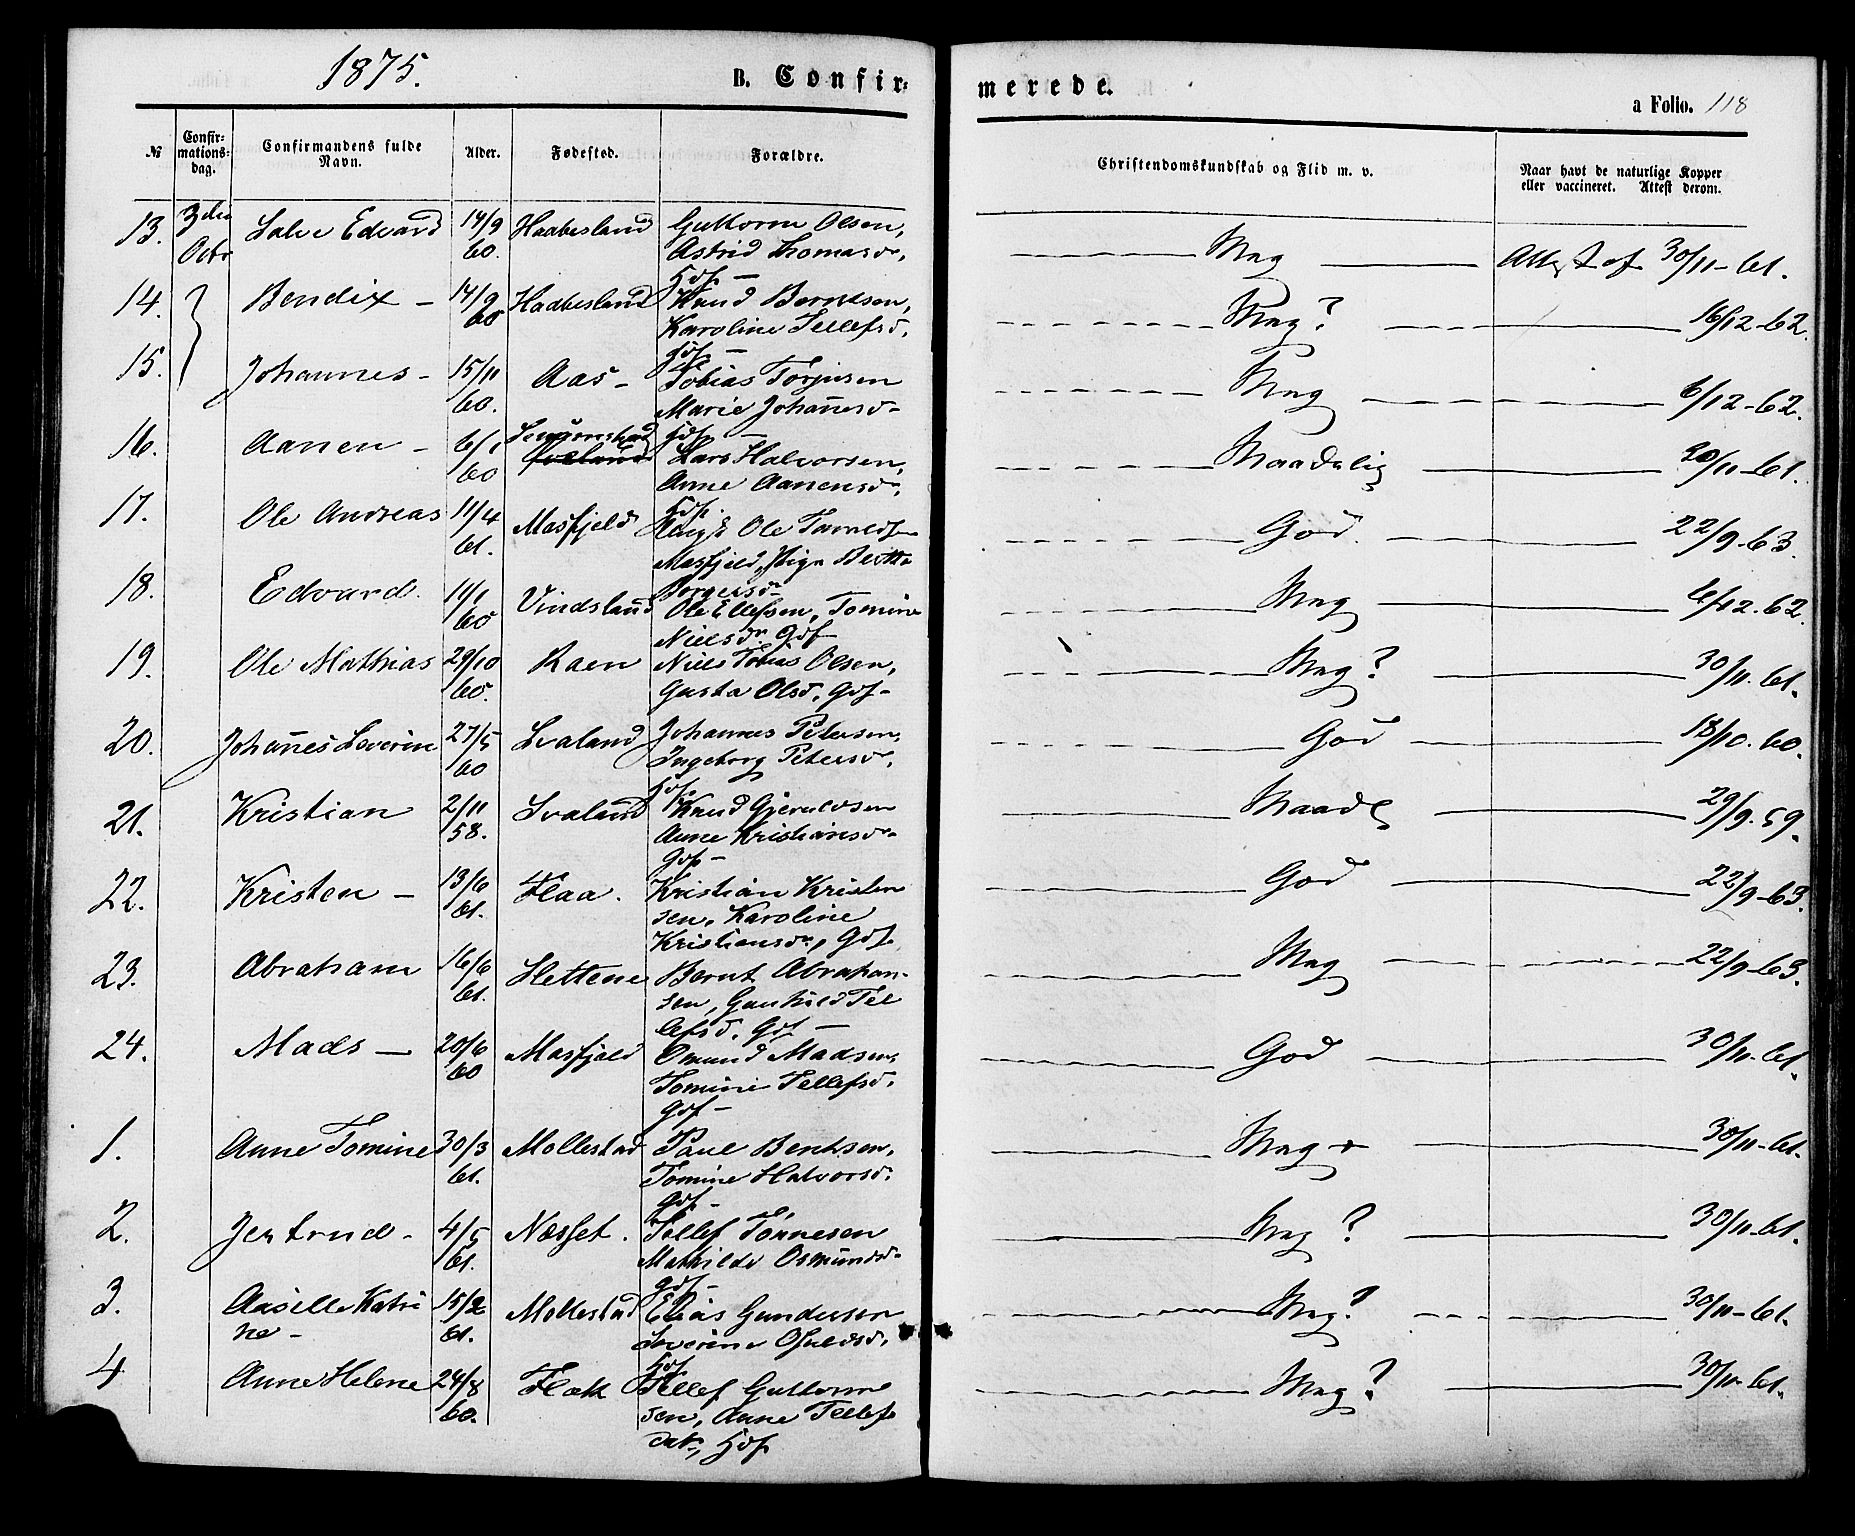 1875.
B. Confir=
merede.
a Folio. 118
№
Confir=
mations=
dag.
Confirmandens fulde
Navn.
Alder.
Fødested.
Forældre.
Christendomskundskab og Flid m. v.
Naar havt de naturlige Kopper
eller vaccineret. Attest derom.
13. 3die Salve Edvard 14/9 Haabesland Guttorm Olsen,
Octbr 60. Astrid Thomasdr, Mag Attest af 30/11-61.
Gdf -
14. Bendix - 14/9 Haabesland Knud Berntsen, Mag? 16/12-62.
60 Karoline Tellefsd,
Gdf -
15. Johannes - 15/11 Aas - Tobias Torjusen Mag 6/12-62.
60. Marie Johañesd-
Gdf -
16. Aanen - 6/1 Lars Halvorsen, Maadelig 30/11-61.
60 Anne Aanensdr,
Gdf.
17. Ole Andreas 11/4 Masfjeld Ole God. 22/9-63.
61. Masfjeld, Pige Berthe
18. Edvard. 11/1 Vindsland Ole Ellefsen, Tomine Mag 6/12.62.
60 Nielsdr. Gdf
19. Ole Mathias 29/10 Raen Niels Tobias Olsen, Mag? 30/11.61.
60. Gusta Olsd, Gdf-
20. Johañes Severin 27/5 Svaland Johannes Petersen, God 18/10.60.
60 Ingeborg Petersd,
Gdf.
21. Kristian 2/11 Svaland Knud Gjeruldsen Maadl 29/9.59.
58. Anne Kristiansdr-
Gdf -
22. Kristen - 13/6 Flaa. Kristian Kristen God 22/9-63.
61. sen, Karoline
Kristiansdr, Gdf.
23. Abraham 16/6 Hettene Bernt Abraham- Mag 22/9-63.
61. sen, Gunhild Tel
lefsd. Gdf -
24. Mads - 20/6 Masfjeld Omund Madsen, God 30/11-61.
60 Tomine Tellefsd,
Gdf -
1. Anne Tomine 30/3 Mollestad Paul Bentsen, Mag + 30/11-61.
61. Tomine Halvorsd.
Gdf -
2. Jertrud - 4/5 Næsset. Tellef Tønnesen Mag? 30/11-61.
61. Mathilde Osmundsd-
Gdf -
3. Aasille Katri 15/2 Mollestad Elias Gundersen Mag? 30/11-61.
ne - 61. Severine Osuldsd,
Gdf
4 Anne Helene 24/8 Flak Tellef Guttorm Mag? 30/11-61.
60. sen, Anne Tellefs
datr, Gdf